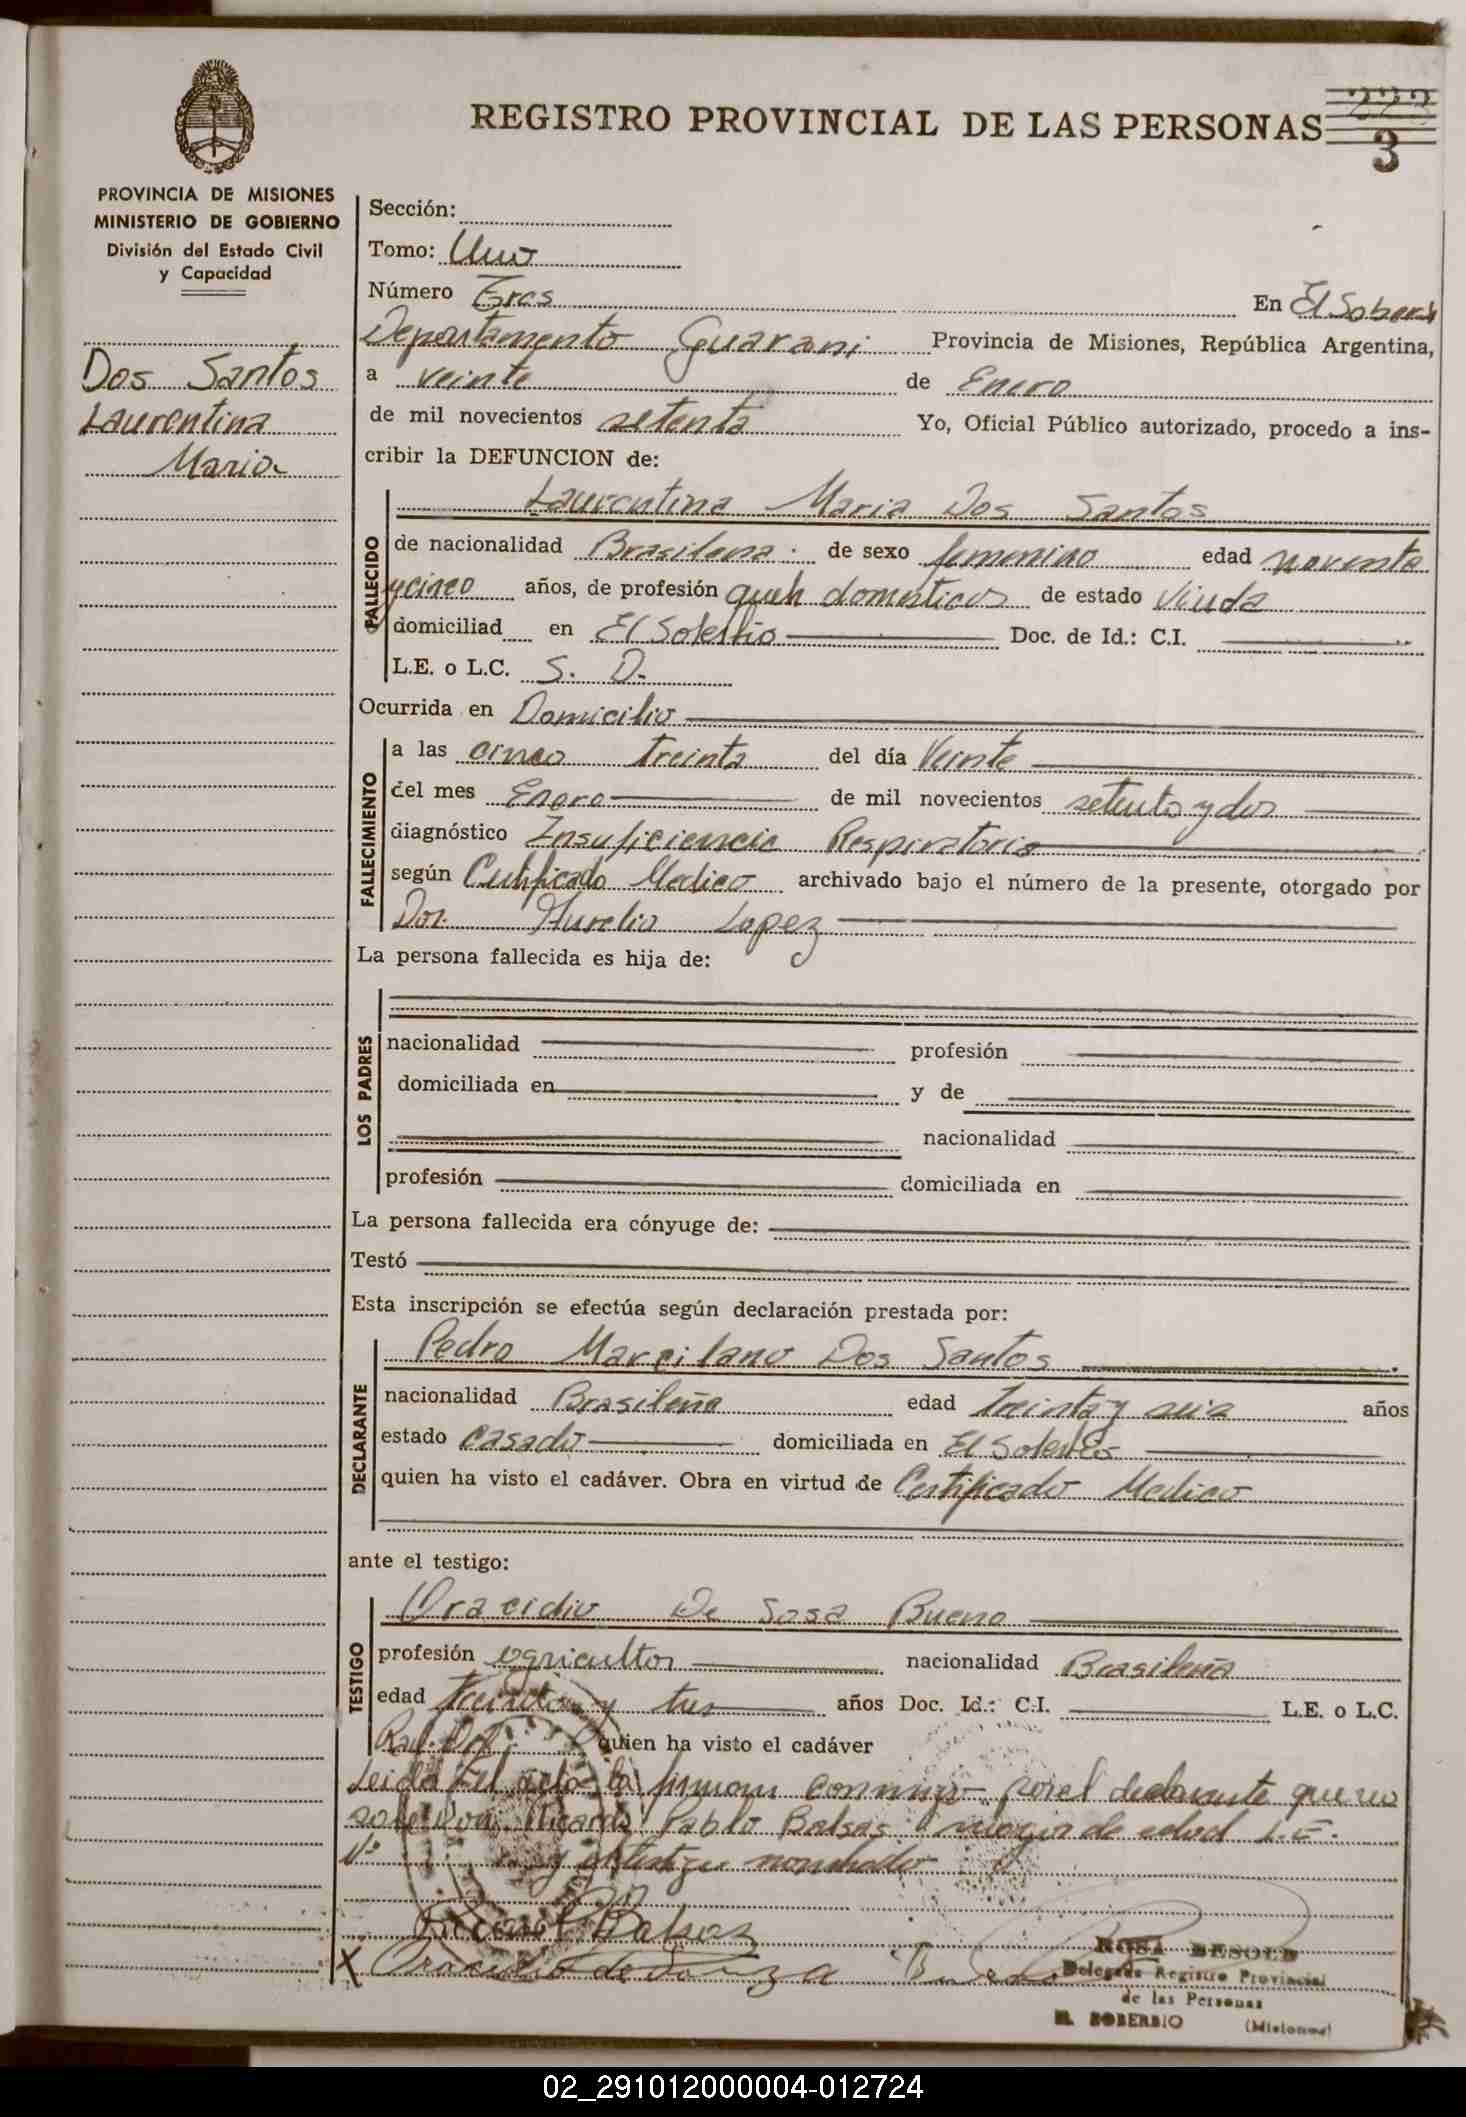 REGISTRO PROVINCIAL DE LAS PERSONAS
3
PROVINCIA DE MISIONES
MINISTERIO DE GOBIERNO
División del Estado Civil
y Capacidad
Dos Santos
Laurentina
Maria
Sección:
Tomo: Uno
Número Tres En El Soberb
Departamento Guarani Provincia de Misiones, República Argentina,
a veinte de Enero
de mil novecientos setenta Yo, Oficial Público autorizado, procedo a ins-
cribir la DEFUNCION de:
Laurentina Maria Dos Santos
FALLECIDO
de nacionalidad Brasilena. de sexo femenino edad noventa
y cinco años, de profesión queh domesticos de estado Viuda
domiciliad en El Soberbio Doc. de Id.: C.I.
L.E. o L.C. S. D.
Ocurrida en Domicilio
FALLECIMIENTO
a las cinco treinta del día Veinte
del mes Enero de mil novecientos setenta y dos
diagnóstico Insuficiencia Respiratoria
según Certificado Medico archivado bajo el número de la presente, otorgado por
Dor. Aurelio Lopez
La persona fallecida es hija de:
LOS PADRES
nacionalidad profesión
domiciliada en y de
nacionalidad
profesión domiciliada en
La persona fallecida era cónyuge de:
Testó
Esta inscripción se efectúa según declaración prestada por:
DECLARANTE
Pedro Marcilano Dos Santos
nacionalidad Brasileña edad treinta y seis años
estado casado domiciliada en El Soberbio
quien ha visto el cadáver. Obra en virtud de Certificado Medico
ante el testigo:
TESTIGO
Oracidio De Sosa Bueno
profesión agricultor nacionalidad Brasileña
edad treinta y tres años Doc. Id.: C.I. L.E. o L.C.
quien ha visto el cadáver
Leida el acta la firman conmigo por el declarante que no
Ricardo Pablo Balsas mayor de edad L.E.
Nº y el testigo nombrado
ROSA BESOLD
Delegada Registro Provincial
de las Personas
EL SOBERBIO (Misiones)
02_291012000004-012724